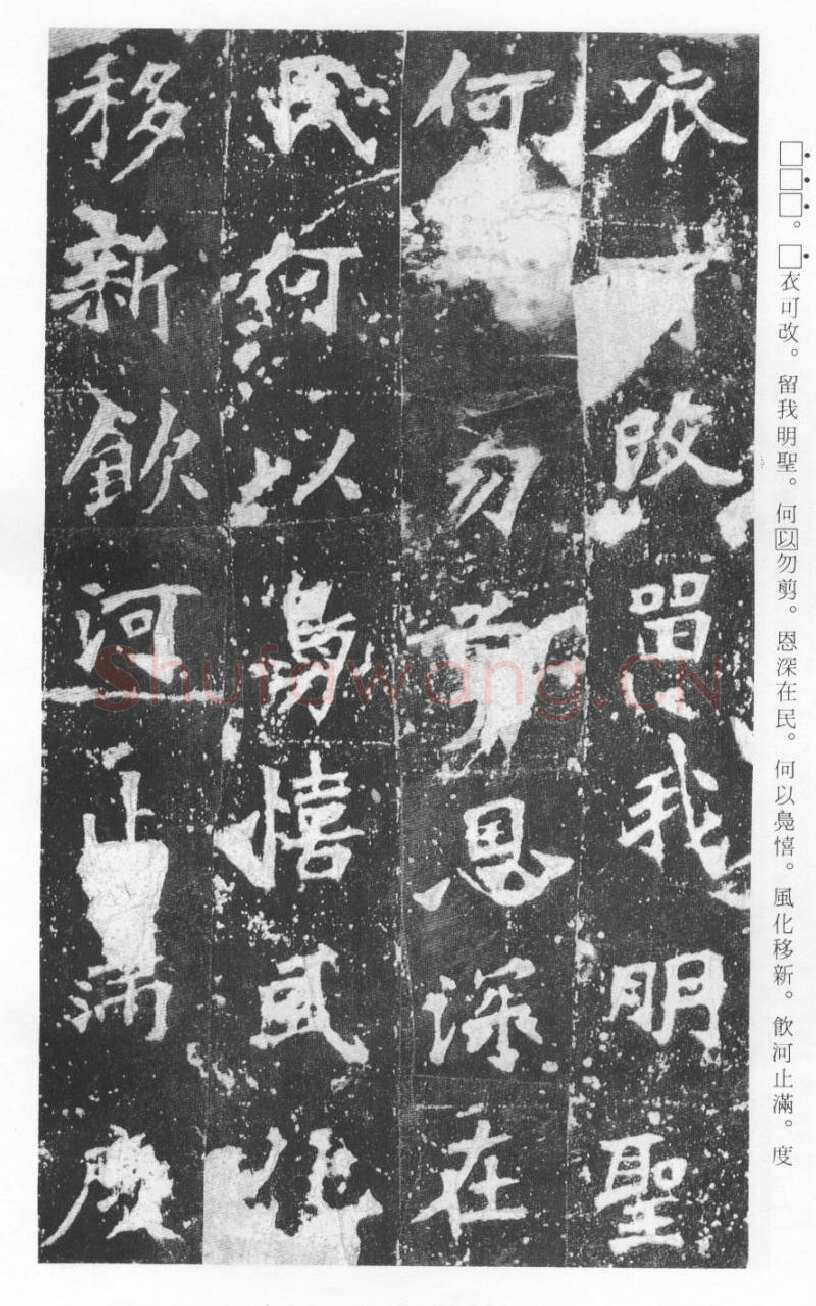 □□□。□衣可改。留我明聖。何以勿剪。恩深在民。何以鳧憘。風化移新。飲河止滿。度
衣可改留我明聖
何勿剪恩深在
民何以鳧憘風化
移新飲河止滿度
Shufawang.CN